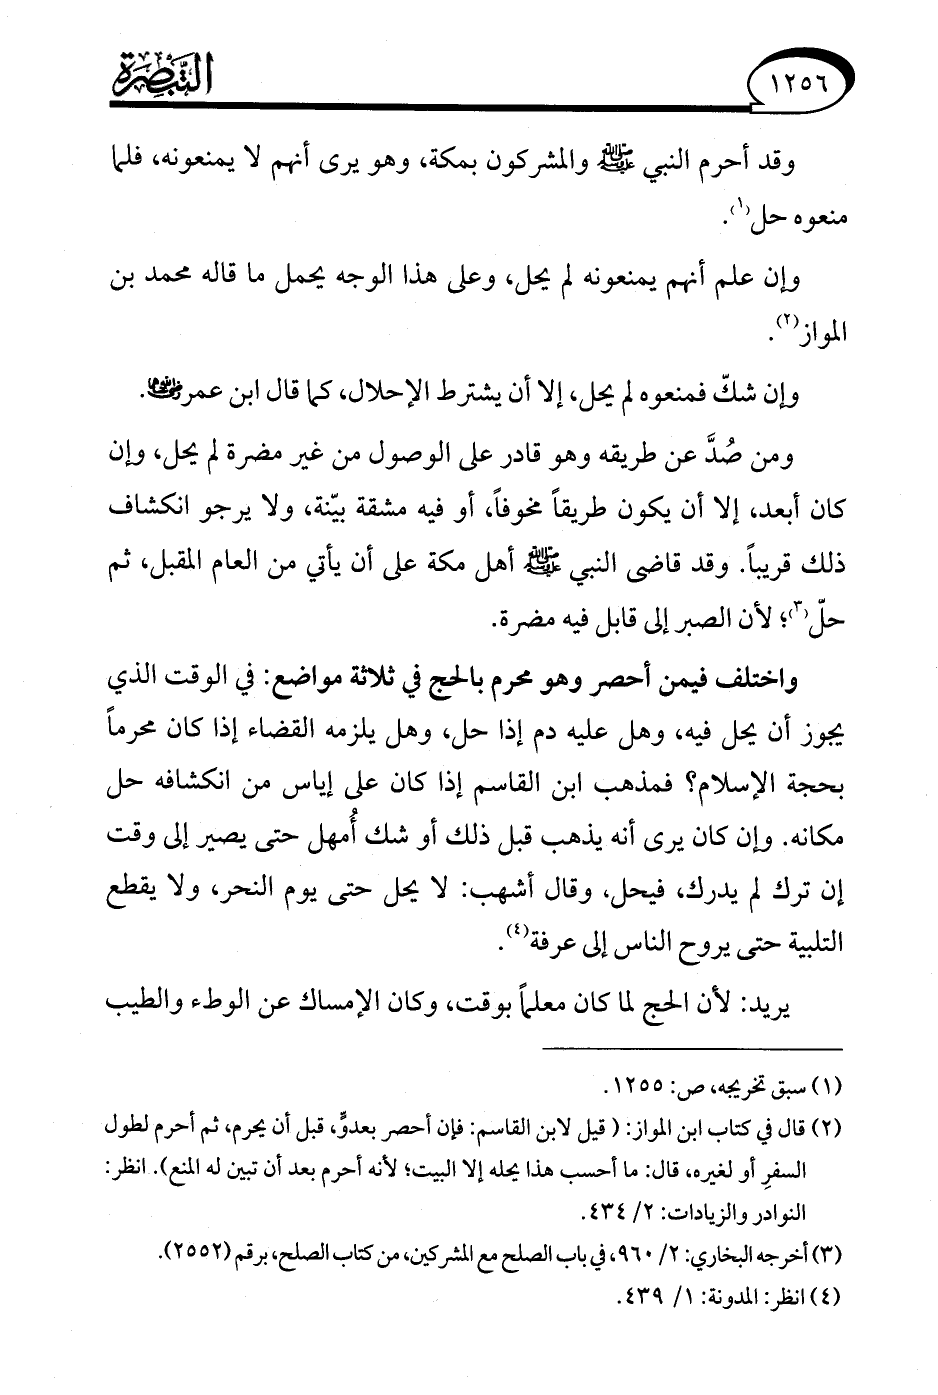 ١٢٥٦
التَّبْصِرَة
وقد أحرم النبي ﷺ والمشركون بمكة، وهو يرى أنهم لا يمنعونه، فلما
منعوه حل(١).
وإن علم أنهم يمنعونه لم يحل، وعلى هذا الوجه يحمل ما قاله محمد بن
المواز(٢).
وإن شكّ فمنعوه لم يحل، إلا أن يشترط الإحلال، كما قال ابن عمر رضي الله عنهما.
ومن صُدَّ عن طريقه وهو قادر على الوصول من غير مضرة لم يحل، وإن
كان أبعد، إلا أن يكون طريقاً مخوفاً، أو فيه مشقة بيّنة، ولا يرجو انكشاف
ذلك قريباً. وقد قاضى النبي ﷺ أهل مكة على أن يأتي من العام المقبل، ثم
حلّ(٣)؛ لأن الصبر إلى قابل فيه مضرة.
واختلف فيمن أحصر وهو محرم بالحج في ثلاثة مواضع: في الوقت الذي
يجوز أن يحل فيه، وهل عليه دم إذا حل، وهل يلزمه القضاء إذا كان محرماً
بحجة الإسلام؟ فمذهب ابن القاسم إذا كان على إياس من انكشافه حل
مكانه. وإن كان يرى أنه يذهب قبل ذلك أو شك أُمهل حتى يصير إلى وقت
إن ترك لم يدرك، فيحل، وقال أشهب: لا يحل حتى يوم النحر، ولا يقطع
التلبية حتى يروح الناس إلى عرفة(٤).
يريد: لأن الحج لما كان معلماً بوقت، وكان الإمساك عن الوطء والطيب
(١) سبق تخريجه، ص: ١٢٥٥.
(٢) قال في كتاب ابن المواز: ( قيل لابن القاسم: فإن أحصر بعدوٍّ، قبل أن يحرم، ثم أحرم لطول
السفرِ أو لغيره، قال: ما أحسب هذا يحله إلا البيت؛ لأنه أحرم بعد أن تبين له المنع). انظر:
النوادر والزيادات: ٢/ ٤٣٤.
(٣) أخرجه البخاري: ٢/ ٩٦٠، في باب الصلح مع المشركين، من كتاب الصلح، برقم (٢٥٥٢).
(٤) انظر: المدونة: ١/ ٤٣٩.